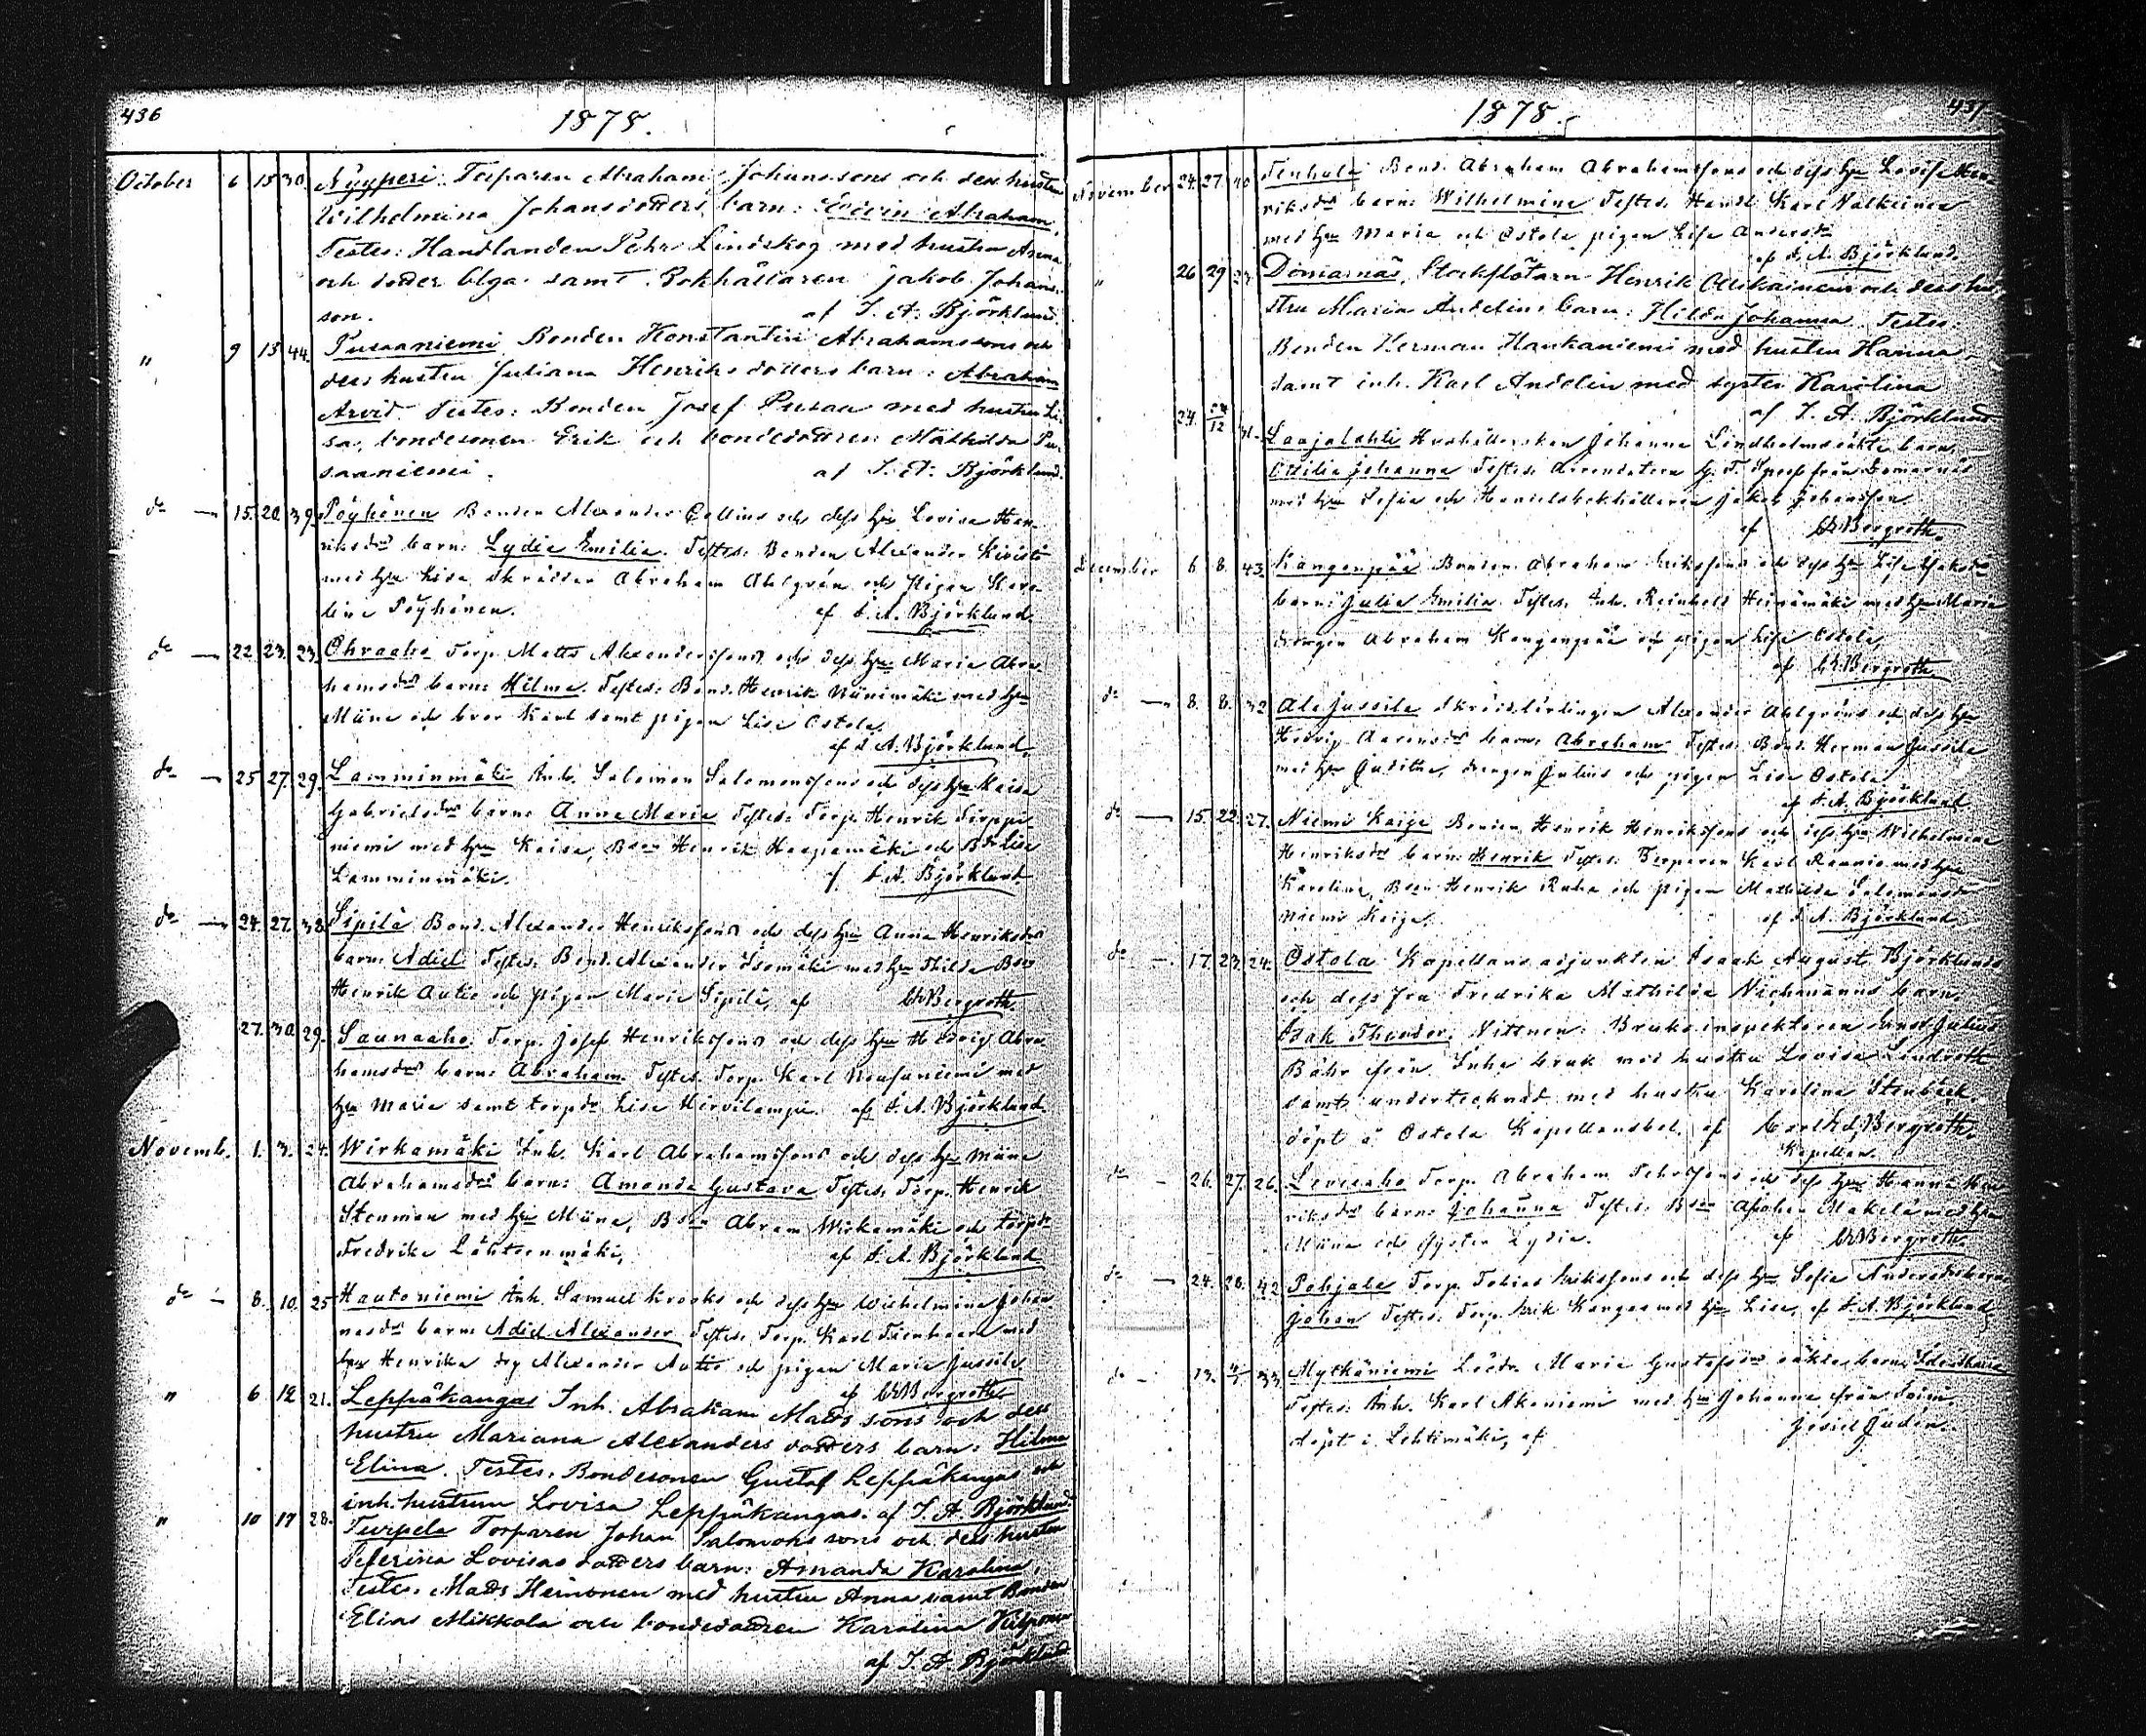 436
1878.
October 6 15 30. Nyyperi. Torparen Abraham Johanssons och dess hustru
Wilhelmina Johansdotters barn: Edvin Abraham,
Testes: Handlanden Pehr Lindskog med hustru Anna
och doder Olga samt Bokhållaren Jakob Johans-
son. af I. A. Björklund.
" 9 13 44. Pusaaniemi Bonden Konstantin Abrahamssons och
dess hustru Juliana Henriksdotters barn: Abraham
Arvid Testes: Bonden Josef Pusaa med hustru Li-
sa, bondesonen Erik och bondedottren Mathilda Pu-
saaniemi. af I. A. Björklund.
do — 15. 20. 39. Pöyhönen Bonden Alexander Collins och dess hu Lovisa Hen-
riksdrs barn: Lydia Emilia. Testes: Bonden Alexander Kivistö
med hu Lisa, skrädder Abraham Ahlgrén och pigan Karo-
lina Pöyhönen. af I. A. Björklund
do — 22. 23. 23. Ohraaho Torp. Matts Alexanderssons och dess hu Maria Abra-
hamsdrs barn: Hilma. Testes: Bond. Henrik Niinimäki med hu
Miina och bror Karl samt pigan Lisa Ostola.
af I. A. Björklund
do — 25 27. 29. Lamminmäki Inh. Salomon Salomonssons och dess hu Kaisa
Gabrielsdrs barn: Anna Maria Testes: Torp. Henrik
niemi med hu Kaisa, Bson Henrik Haapamäki och Bdr Lisa
Lamminmäki. af I. A. Björklund
do — 24. 27. 38. Sipilä Bond. Alexander Henrikssons och dess hu Anna Henriksdrs
barn: Adiel Testes: Bond. Alexander Isomäki med hu Hilda Bson
Henrik Autio och pigan Maria Sipilä, af Ch Bergroth.
27. 30. 29. Saunaaho. Torp. Josef Henrikssons och dess hu Hedvig Abra-
hamsdrs barn: Abraham. Testes: Torp. Karl med
hu Maria samt torpdr Lisa Hirvilampi. af I. A. Björklund.
Novemb. 1. 3. 24. Wirkamäki Inh. Karl Abrahamssons och dess hu Miina
Abrahamsdrs barn: Amanda Gustava Testes: Torp. Henrik
Stenman med hu Miina, Bson Abram Wirkamäki och torpdr
Fredrika Lähteenmäki, af I. A. Björklund
do — 8. 10. 25 Hautoniemi Inh. Samuel Krooks och dess hu Wilhelmina Johan-
nesdrs barn: Adiel Alexander Testes: Torp. Karl med
hu Henrika drg Alexander Autio och pigan Maria Jussila
af Ch Bergroth
" 6 12 21. Leppäkangas Inh. Abraham Mattssons och dess
hustru Mariana Alexandersdotters barn: Hilma
Elina. Testes: Bondesonen Gustaf Leppäkangas och
inh. hustrun Lovisa Leppäkangas. af I. A. Björklund.
" 10 17 28. Turpela Torparen Johan Salomonssons och dess hustru
Lovisasdotters barn: Amanda Karolina,
Testes: Matts Heinonen med hustru Anna samt Bonden
Elias Mikkola och bondedottren Karolina
af I. A. Björklund
437
1878.
November 24. 27. 40 Bond. Abraham Abrahamssons och dess hu Lovisa Hen-
riksdrs barn: Wilhelmina Testes: Handl. Karl
med hu Maria och Ostola pigan Lisa Andersdr
af I. A. Björklund.
" 26 29 Domarnäs, Stockflötarn Henrik och dess hu-
stru Maria Andelins barn: Hilda Johanna. Testes:
Bonden Herman Hankaniemi med hustru Hanna
samt inh. Karl Andelin med syster Karolina
af I. A. Björklund
24. 24/12 31. Laajalahti Hushållerskan Johanna Lindholms oäkta barn,
Otilia Johanna Testes: Arrendatorn G. T. från Domarnäs
med hu Sofia och Handelsbokhållaren Jakob Johansson.
af Ch Bergroth.
December 6 8. 43. Kangenpää Bonden Abraham Erikssons och dess hu Lisa Jakobsdr
barn: Julia Emilia. Testes: Inh. Reinhold Heinämäki med hu Maria
drengen Abraham Kangenpää och pigan Lisa Ostola,
af Ch Bergroth
do — 8. 8. 32 Ala Jussila Skrädd.lärlingen Alexander Ahlgréns och dess hu
Hedvig Aaronsdrs barn: Abraham Testes: Bond. Herman Jussila
med hu Juditha, drengen Julius och pigan Lisa Ostola
af I. A. Björklund
do — 15. 22. 27. Niemi Kaija Bonden Henrik Henrikssons och dess hu Wilhelmina
Henriksdrs barn: Henrik Testes: Torparen Karl Rannio med hu
Karolina, Bson Henrik Ruha och pigan Mathilda Salomonsdr
Niemi Kaija. af I. A. Björklund
do — 17. 23. 24. Ostola Kapellansadjunkten Isaak August Björklunds
och dess fru Fredrika Mathilda Nickmanns barn
Isak Theodor, Vittnen: Bruksinspektoren Ernst Julius
Bähr från Inha bruk med hustru Lovisa Lindroth
samt undertecknad med hustru Karolina Stenbäck
döpt å Ostola Kapellansbol. af Carl Ed. Bergroth.
Kapellan.
do — 26. 27. 26. Leveaho Torp. Abraham Pehrssons och dess hu Hanna Hen-
riksdrs barn: Johanna Testes: Bson Mäkelä med hu
Miina och syster Lydia. af Ch Bergroth.
do — 24. 28. 42 Pohjala Torp. Tobias Erikssons och dess hu Sofia Andersdrs barn
Johan Testes: Torp. Erik Kangas med hu Lisa, af I. A. Björklund
do — 13. 33 Mytkäniemi Lösdr. Maria Gustafsdrs oäkta barn,
Testes: Inh. Karl Akoniemi med hu Johanna från
döpt i Lehtimäki, af Josiel Judén.